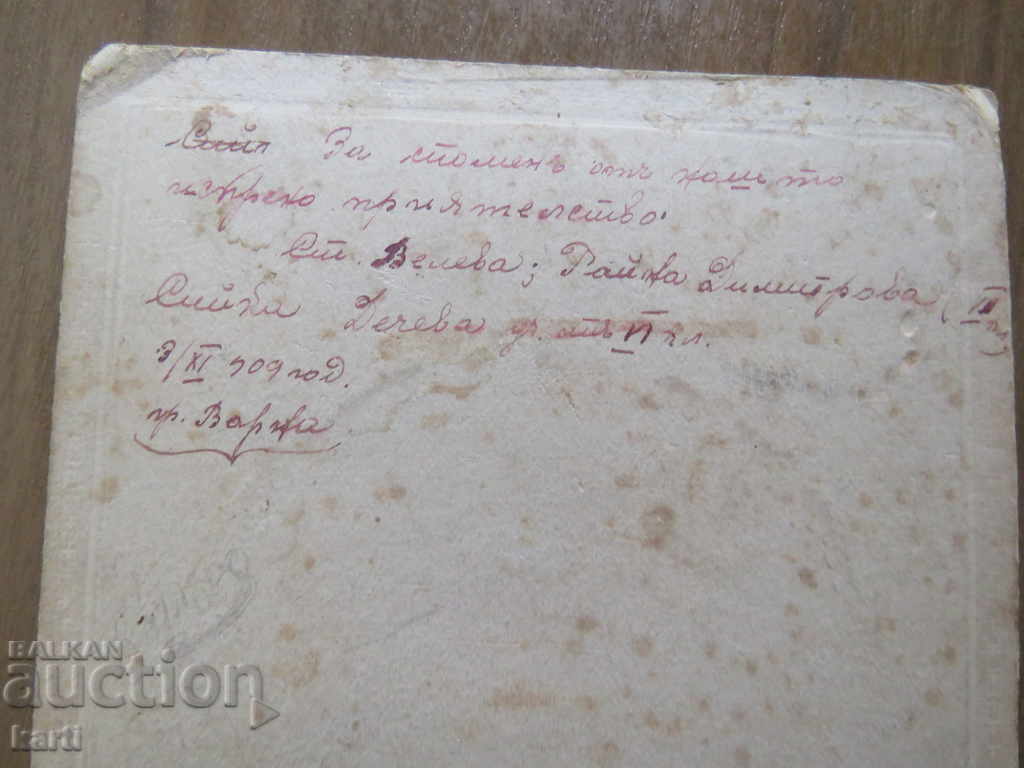 За споменъ отъ нашето
искрено приятелство.
Ст. Велева; Райна Димитрова (III кл)
Сийка Дечева уч. отъ VI кл.
3/XI 909 год.
гр. Варна.
BALKAN
auction
karti